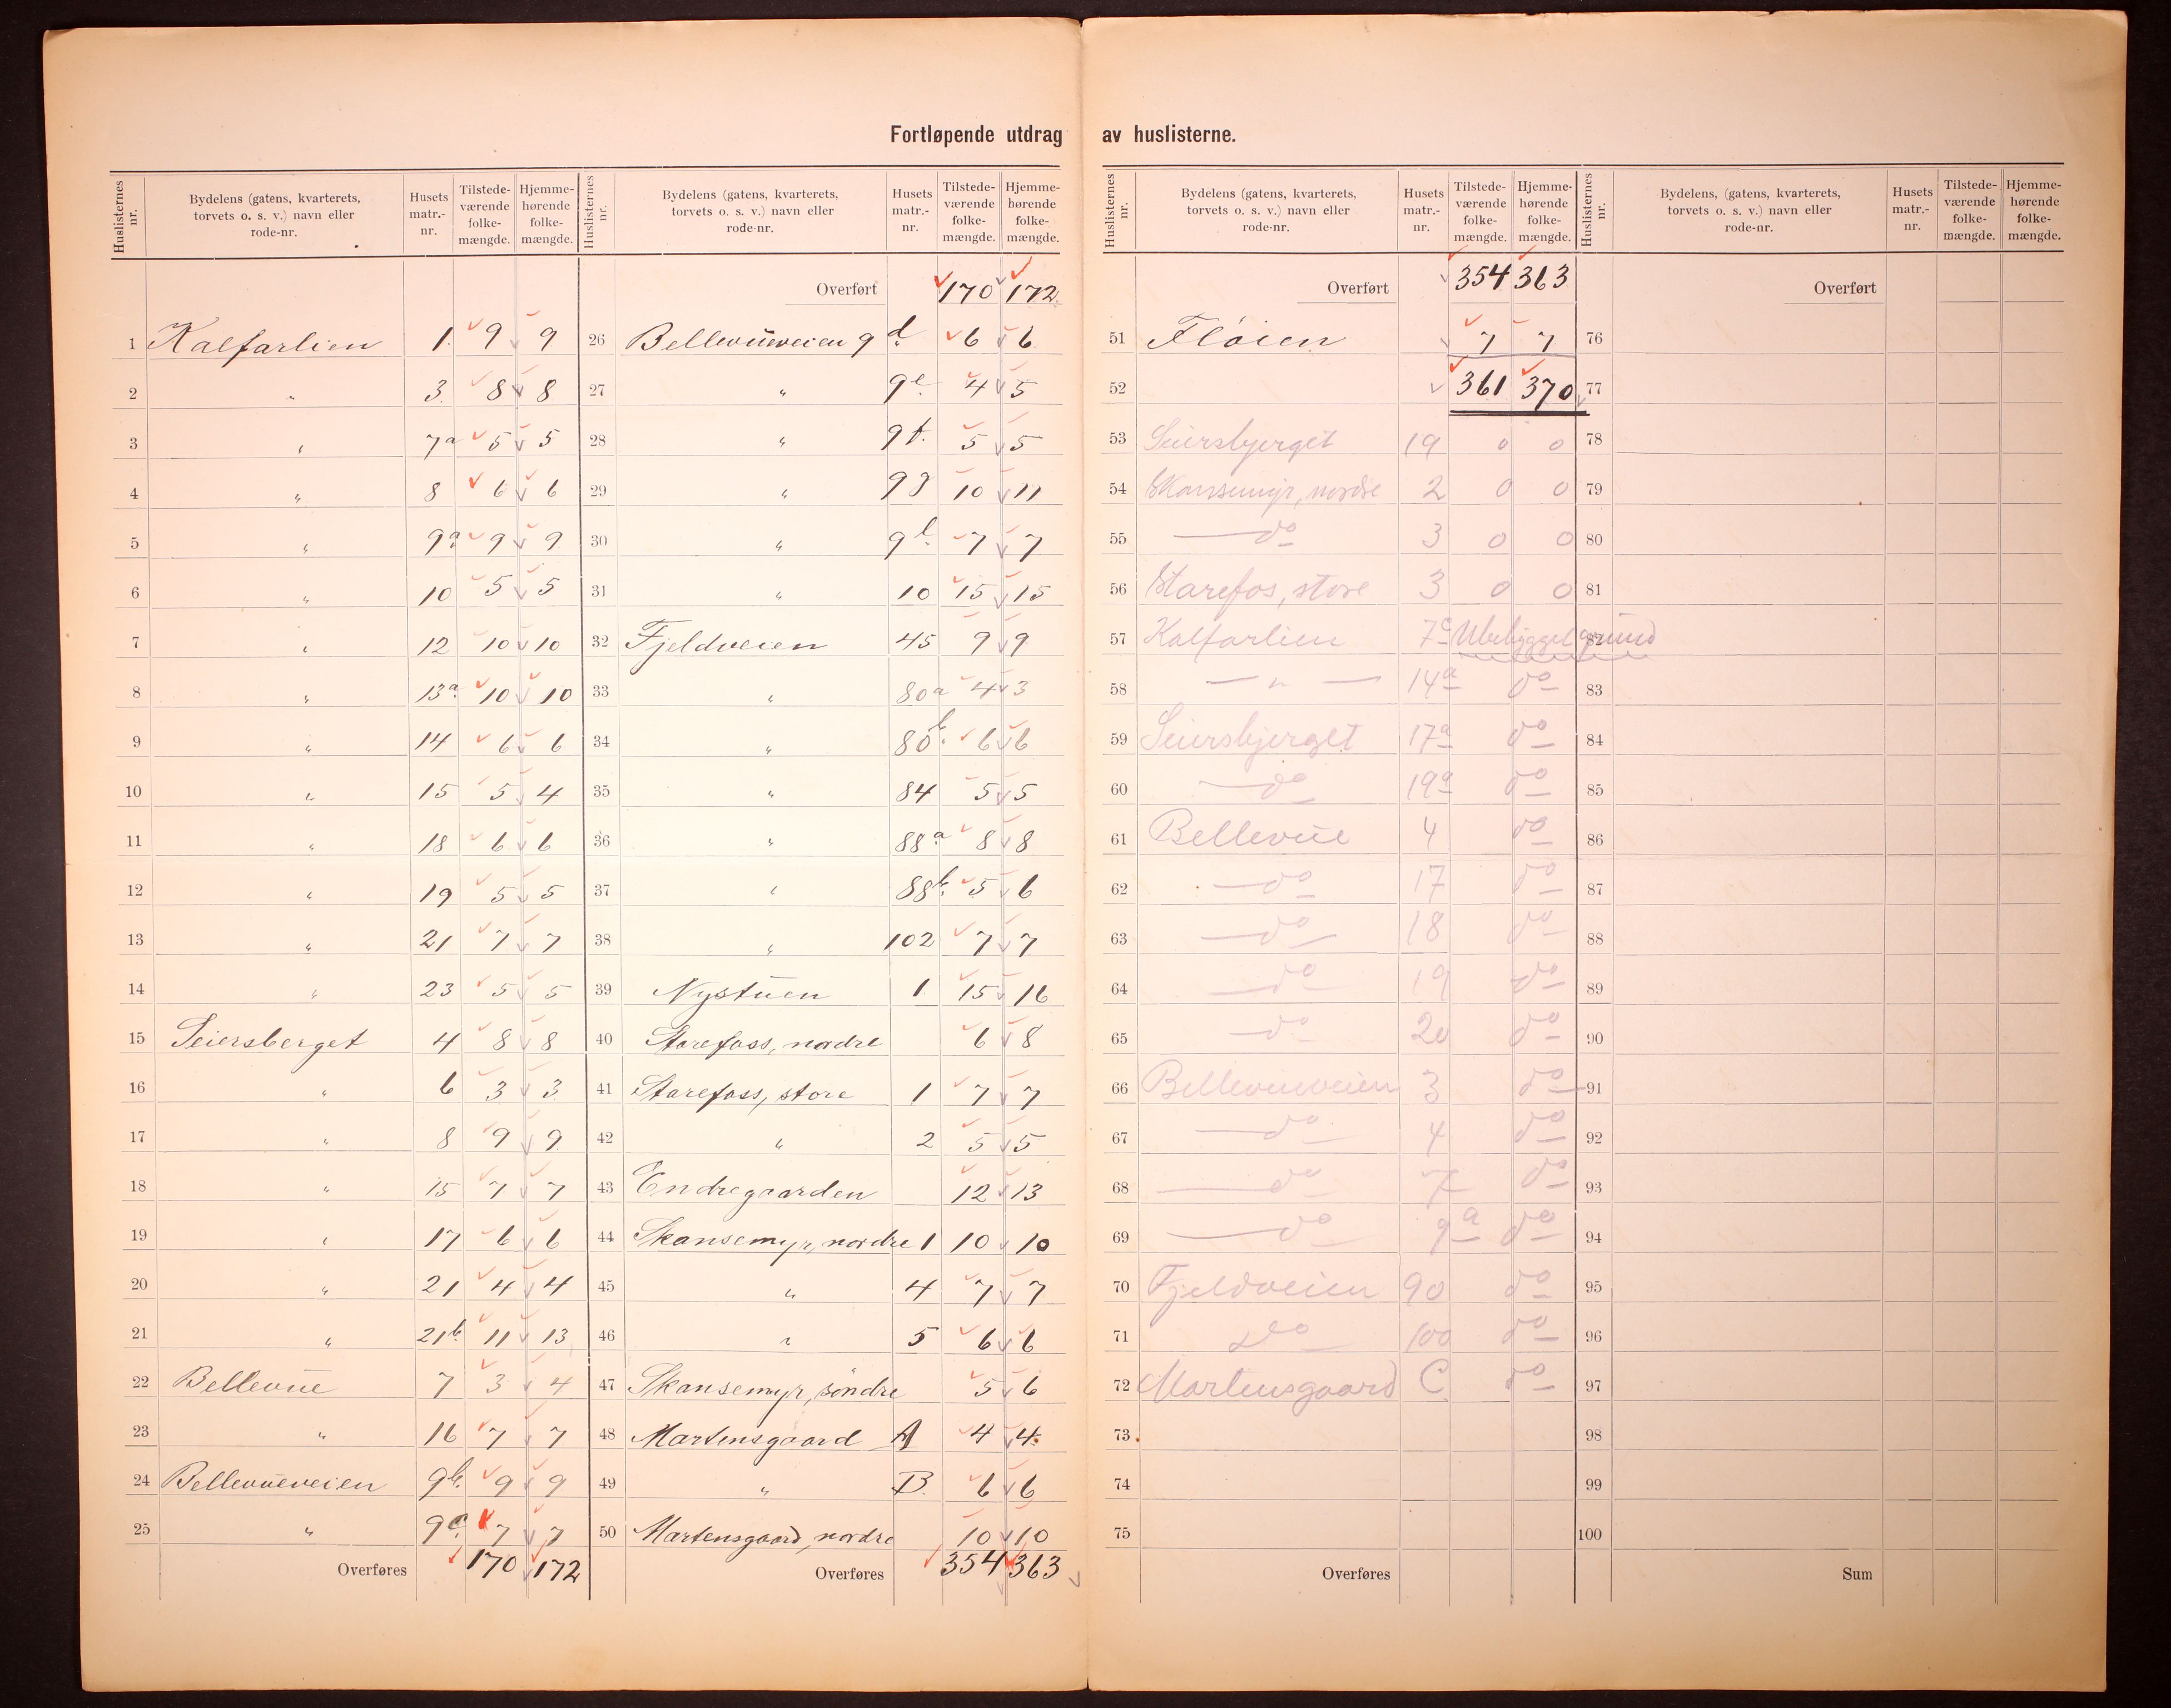 Fortløpende utdrag av huslisterne.
Huslisternes nr. Bydelens (gatens, kvarterets, torvets o. s. v.) navn eller rode-nr. Husets matr.-nr. Tilstede-værende folke-mængde. Hjemme-hørende folke-mængde.
1 Kalfarlien 1. 9 9
2 „ 3. 8 8
3 „ 7a 5 5
4 „ 8 6 6
5 „ 9a 9 9
6 „ 10 5 5
7 „ 12 10 10
8 „ 13a 10 10
9 „ 14 6 6
10 „ 15 5 4
11 „ 18 6 6
12 „ 19 5 5
13 „ 21 7 7
14 „ 23 5 5
15 Seiersberget 4 8 8
16 „ 6 3 3
17 „ 8 9 9
18 „ 15 7 7
19 „ 17 6 6
20 „ 21 4 4
21 „ 21b. 11 13
22 Bellevue 7 3 4
23 „ 16 7 7
24 Bellevueveien 9b. 9 9
25 „ 9c 7 7
Overføres 170 172
Huslisternes nr. Bydelens (gatens, kvarterets, torvets o. s. v.) navn eller rode-nr. Husets matr.-nr. Tilstede-værende folke-mængde. Hjemme-hørende folke-mængde.
Overført 170 172
26 Bellevueveien 9 d. 6 6
27 „ 9e. 4 5
28 „ 9f. 5 5
29 „ 9g 10 11
30 „ 9 7 7
31 „ 10 15 15
32 Fjeldveien 45 9 9
33 „ 80a 4 3
34 „ 80b. 6 6
35 „ 84 5 5
36 „ 88a 8 8
37 „ 88b. 5 6
38 „ 102 7 7
39 Nystuen 1 15 16
40 Starefoss, nordre 6 8
41 Starefoss, store 1 7 7
42 „ 2 5 5
43 Endregaarden 12 13
44 Skansemyr, nordre 1 10 10
45 „ 4 7 7
46 „ 5 6 6
47 Skansemyr, söndre 5 6
48 Martensgaard A 4 4
49 „ B. 6 6
50 Martensgaard, nordre 10 10
Overføres 354 363
Huslisternes nr. Bydelens (gatens, kvarterets, torvets o. s. v.) navn eller rode-nr. Husets matr.-nr. Tilstede-værende folke-mængde. Hjemme-hørende folke-mængde.
Overført 354 363
51 Fløien 7 7
52 361 370
53 Seiersbjerget 19 0 0
54 Skansemyr, nordre 2 0 0
55 do 3 0 0
56 Starefos, store 3 0 0
57 Kalfarlien 7c Ubebygget grund
58 — „ — 14a do
59 Seiersbjerget 17a do
60 do 19a do
61 Bellevue 4 do
62 do 17 do
63 do 18 do
64 do 19 do
65 do 20 do
66 Bellevueveien 3 do
67 do 4 do
68 do 7 do
69 do 9a do
70 Fjeldveien 90 do
71 do 100 do
72 Martensgaard C do
73
74
75
Overføres
Huslisternes nr. Bydelens, (gatens, kvarterets, torvets o. s. v.) navn eller rode-nr. Husets matr.-nr. Tilstede-værende folke-mængde. Hjemme-hørende folke-mængde.
Overført
76
77
78
79
80
81
82
83
84
85
86
87
88
89
90
91
92
93
94
95
96
97
98
99
100
Sum